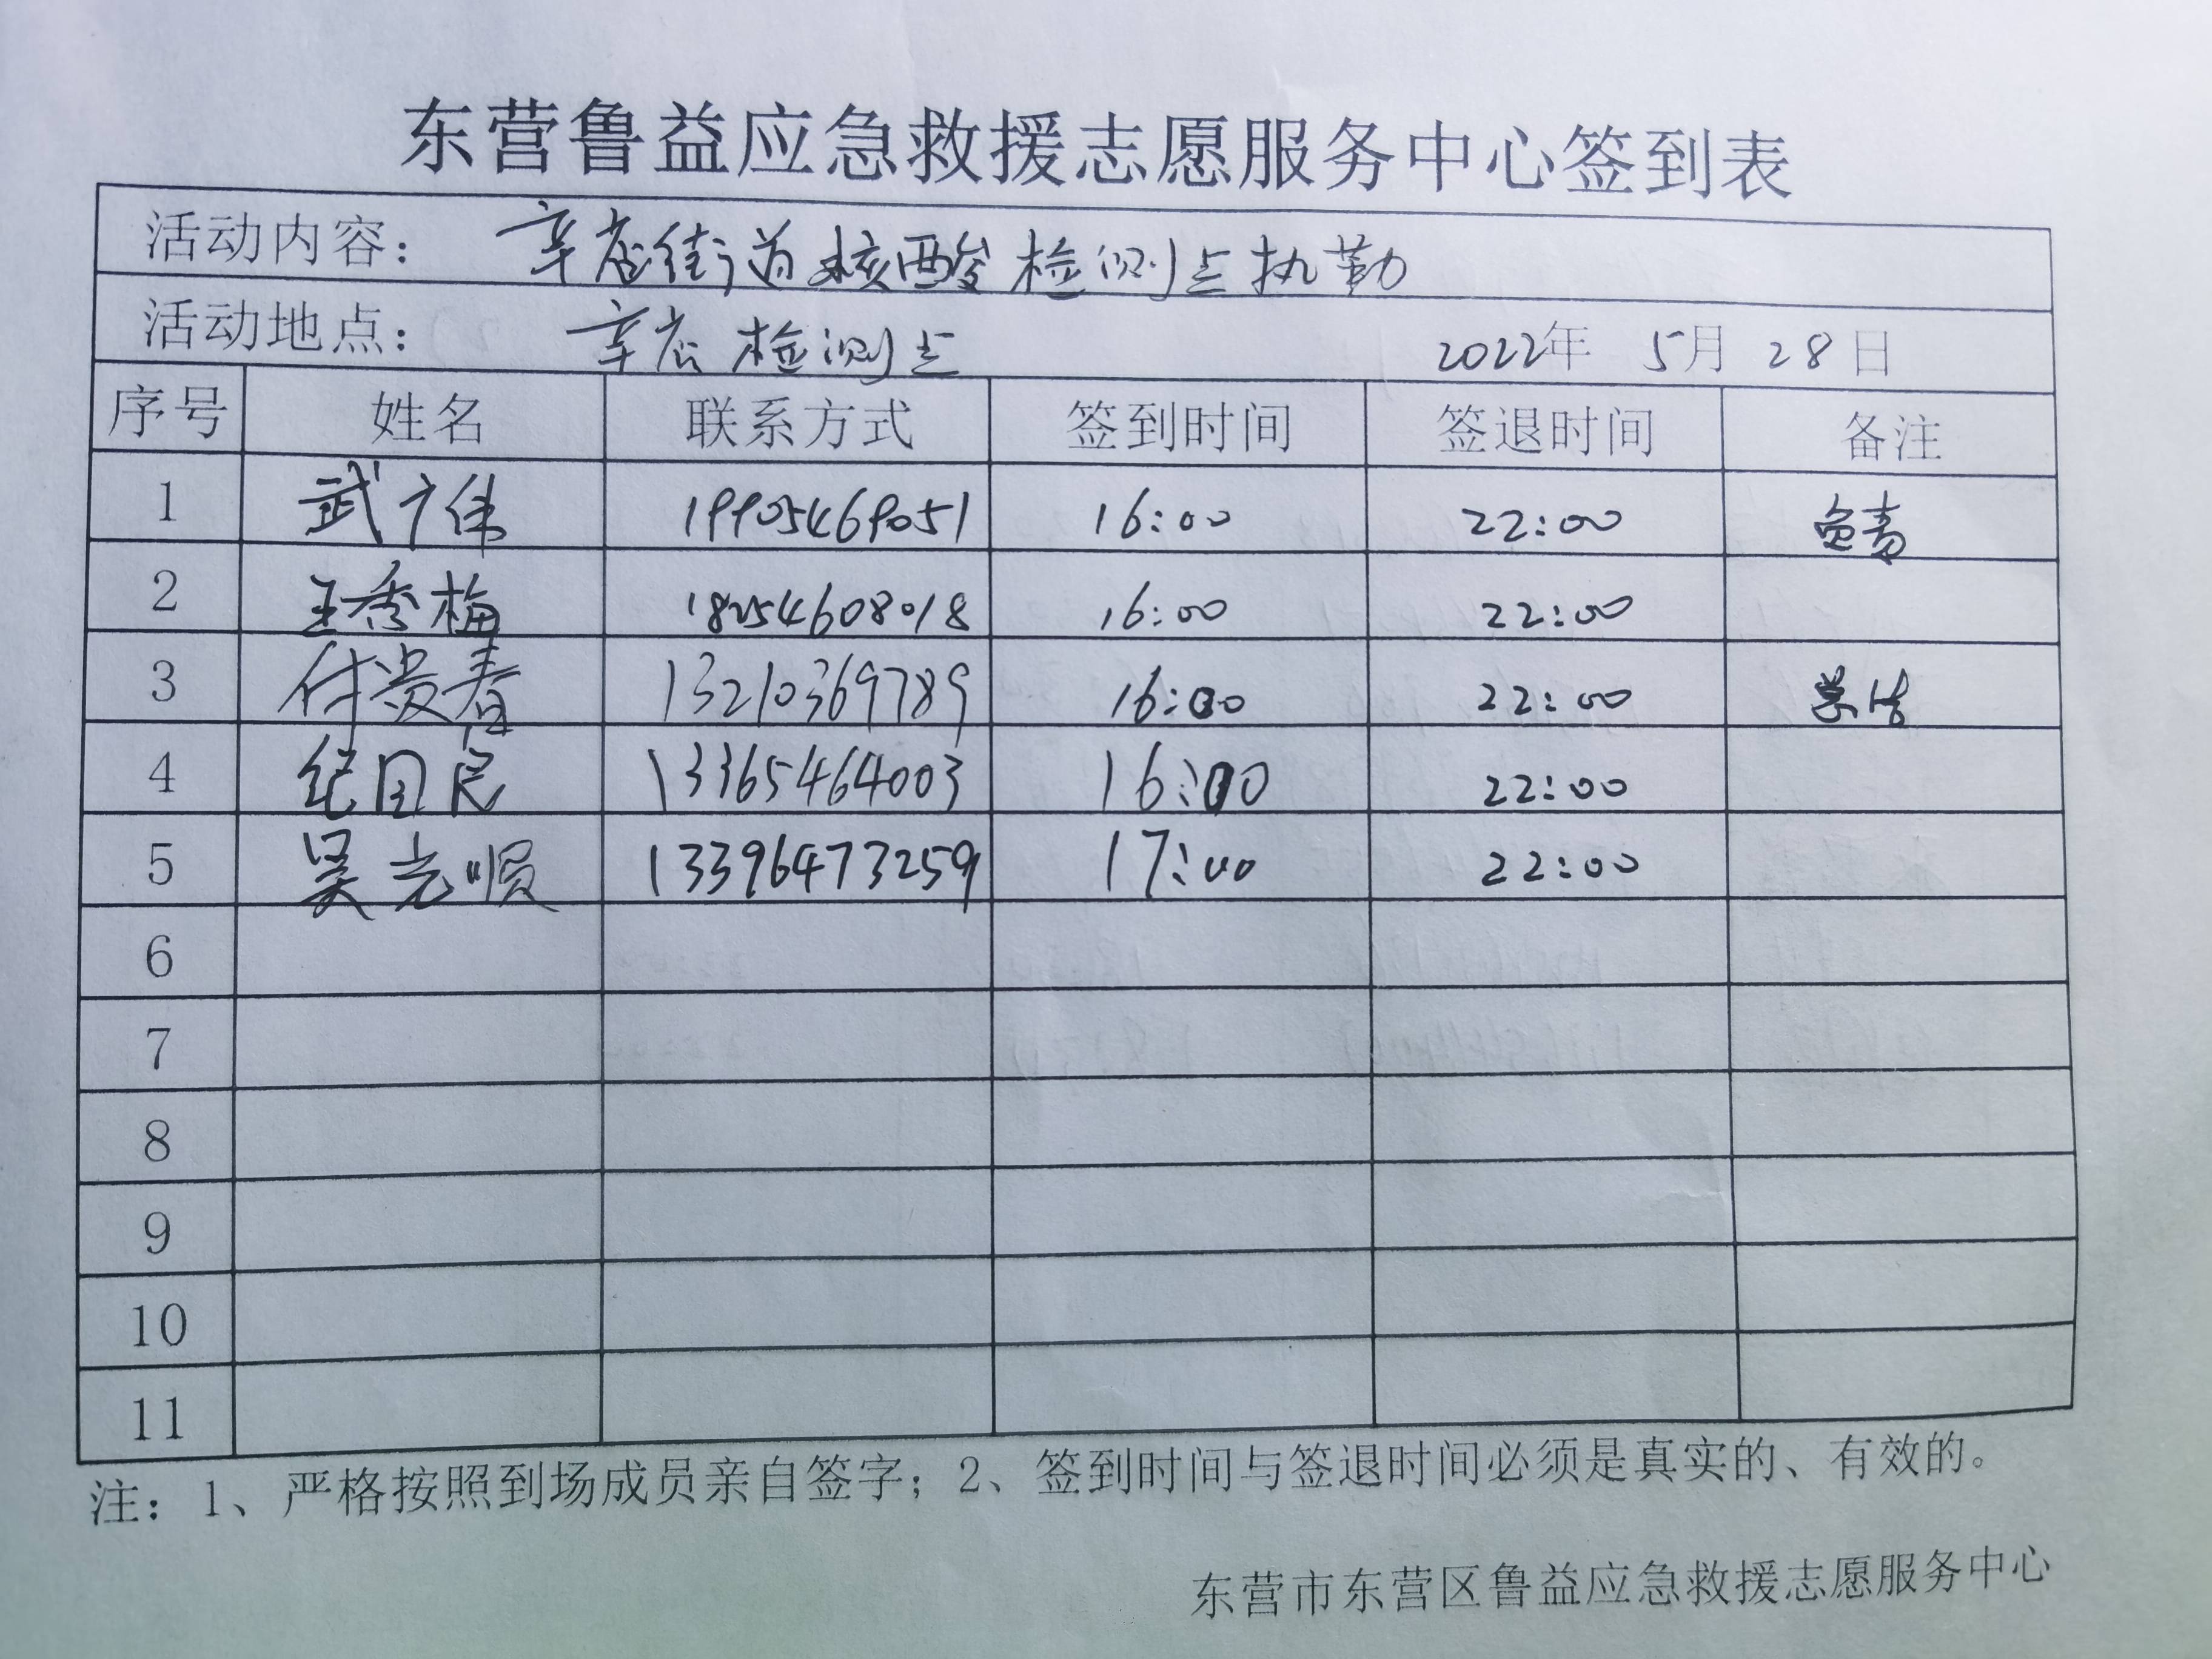 东营鲁益应急救援志愿服务中心签到表
活动内容: 辛店街道核酸检测点执勤
活动地点: 辛店检测点 2022年 5月 28日
序号 姓名 联系方式 签到时间 签退时间 备注
1 武广伟 19905469051 16:00 22:00
2 王秀梅 18254608018 16:00 22:00
3 付贵春 13210369789 16:00 22:00
4 纪国民 13365464003 16:00 22:00
5 吴光顺 13396473259 17:00 22:00
6
7
8
9
10
11
注: 1、严格按照到场成员亲自签字; 2、签到时间与签退时间必须是真实的、有效的。
东营市东营区鲁益应急救援志愿服务中心